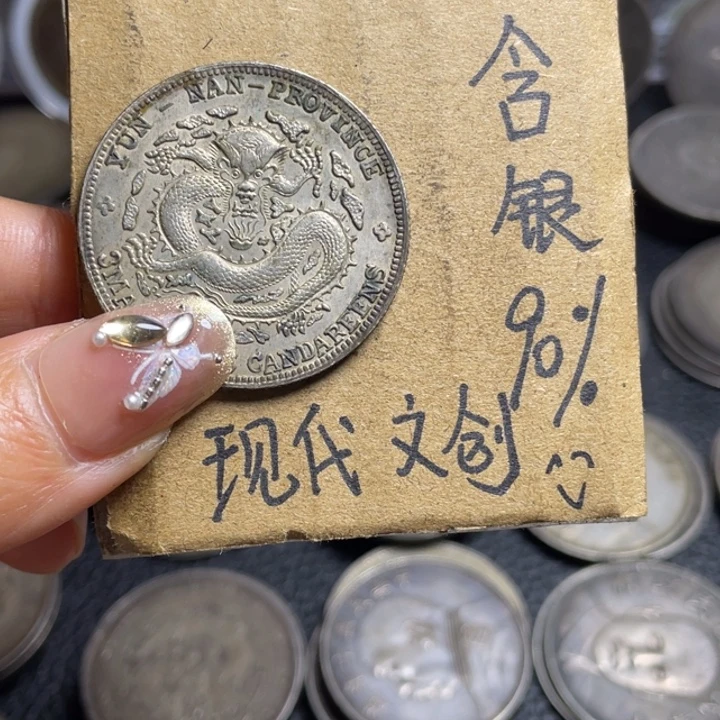 YUN-NAN-PROVINCE
CANDAREENS
含银90%
现代文创